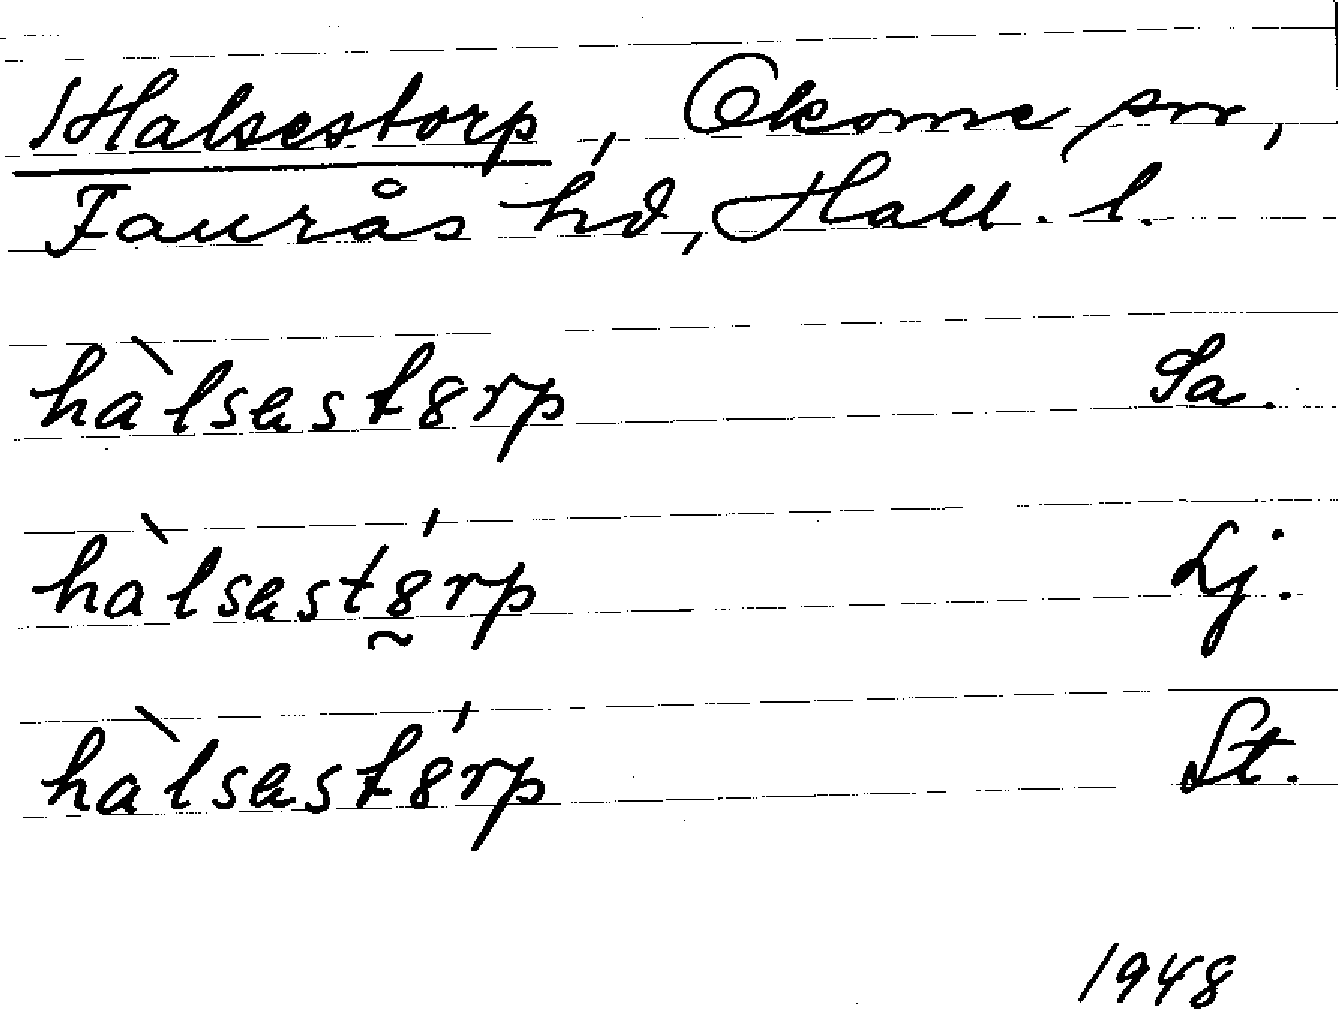 Halsestorp, Okome sn,
Faurås hd, Hall. l.
hàlsest8rp Sa.
hàlsest8́rp Lj.
hàlsest8́rp St.
1948